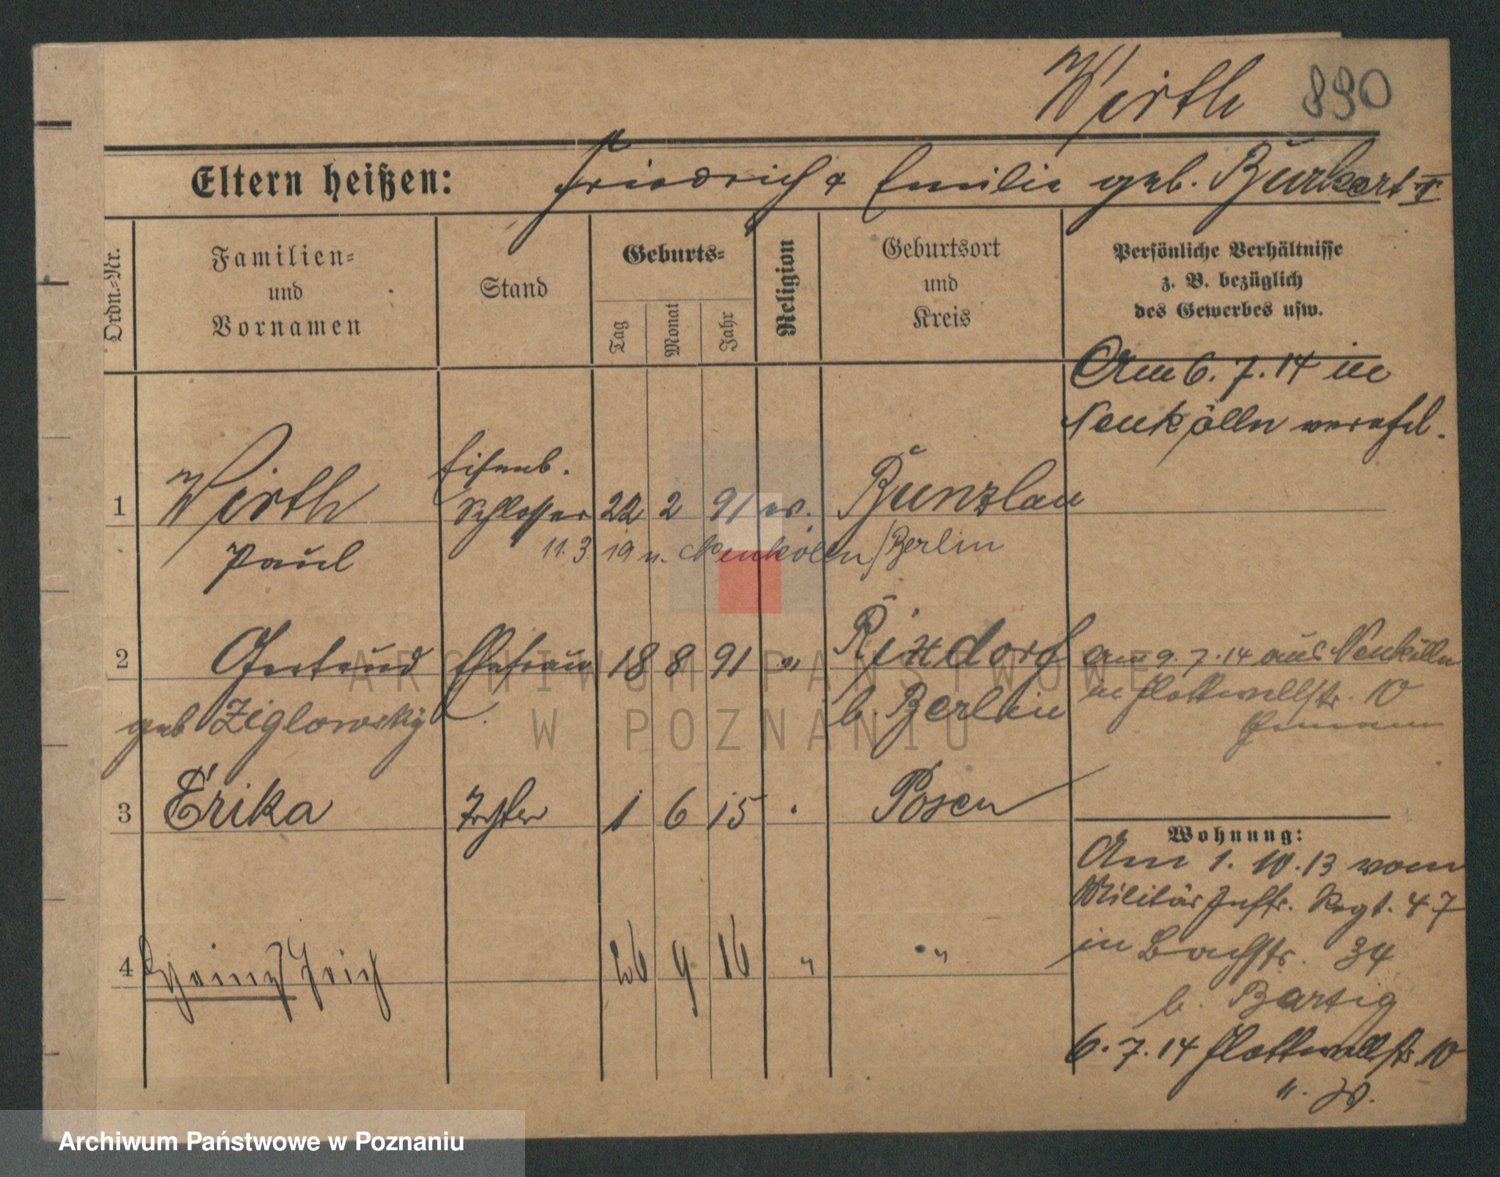 Wirth 890
Eltern heißen: Friedrich & Emilie geb. Burkert
Ordn.-Nr.
Familien-
und
Vornamen
Stand
Geburts-
Tag
Monat
Jahr
Religion
Geburtsort
und
Kreis
Persönliche Verhältnisse
z. B. bezüglich
des Gewerbes usw.
Am 6. 7. 14 in
Neukölln verehel.
1 Wirth Eisenb. Schlosser 22 2 91 ev. Bunzlau
Paul 11. 3 19 n. Neukölln/Berlin
2 Gertrud Ehefrau 18 8 91 " Rixdorf
geb Ziglowsky b. Berlin
am 9. 7. 14 aus Neukölln
in Flottwellstr. 10
3 Erika Tochter 1 6 15 " Posen
4 Heinz Erich 26 9 16 " "
Wohnung:
Am 1. 10. 13 vom
Militär Inftr. Regt. 47
in Bachstr. 34
b. Bartig
6. 7. 14 Flottwellstr. 10
ARCHIWUM PAŃSTWOWE
W POZNANIU
Archiwum Państwowe w Poznaniu